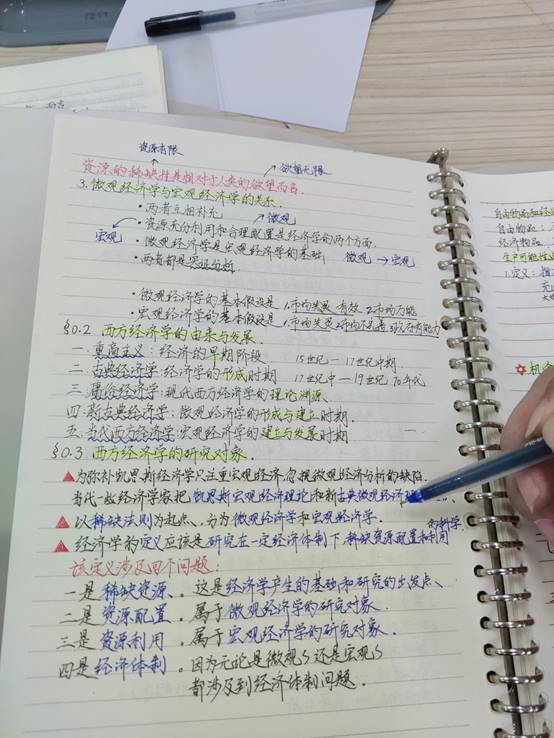 资源有限
资源的稀缺性是相对于人类的欲望而言
欲望无限
3.微观经济学与宏观经济学的关系
·两者互相补充
微观
·资源充分利用和合理配置是经济学的两个方面.
宏观
·微观经济学是宏观经济学的基础;
微观→宏观
·两者都是实证分析.
·微观经济学的基本假设是 1.市场失灵 有效 2.市场万能
·宏观经济学的基本假设是 1.市场失灵 2.市场不完善 政府有能力
§0.2.西方经济学的由来与发展
一.重商主义:经济的早期阶段 15世纪—17世纪中期
二.古典经济学:经济学的形成时期 17世纪中—19世纪70年代
三.庸俗经济学:现代西方经济学的理论渊源.
四.新古典经济学:微观经济学的形成与建立时期.
五.当代西方经济学:宏观经济学的建立与发展时期
§0.3.西方经济学的研究对象.
▲为弥补凯恩斯经济学只注重宏观经济.忽视微观经济分析的缺陷.
当代一些经济学家把凯恩斯宏观经济理论和新古典微观经济
▲以稀缺法则为起点、分为微观经济学和宏观经济学.
▲经济学的定义应该是研究在一定经济体制下稀缺资源配置和利用的科学
该定义涉及四个问题:
一是稀缺资源、这是经济学产生的基础和研究的出发点、
二是资源配置.属于微观经济学的研究对象.
三是资源利用.属于宏观经济学的研究对象.
四是经济体制.因为无论是微观S还是宏观S
都涉及到经济体制问题.
自由物品
经济物品
生产可能性
1.定义:
机